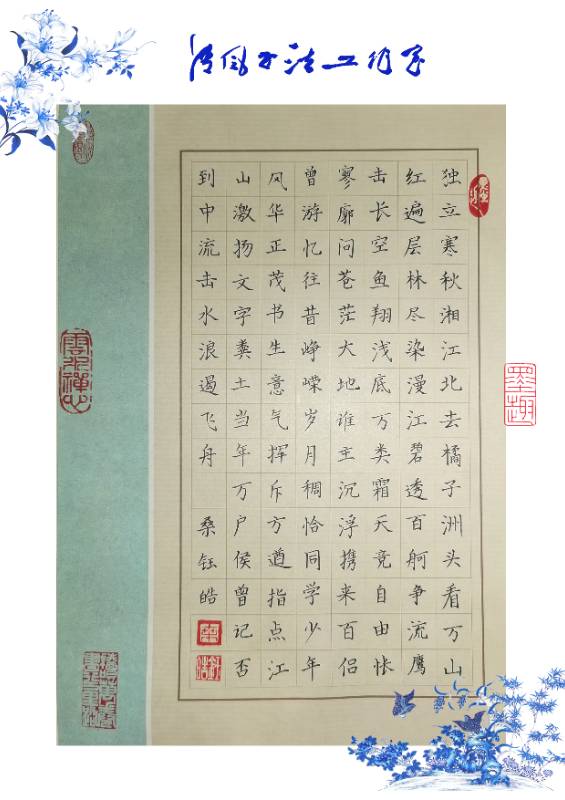 清风书法工作室
独立寒秋湘江北去橘子洲头看万山
红遍层林尽染漫江碧透百舸争流鹰
击长空鱼翔浅底万类霜天竞自由怅
寥廓问苍茫大地谁主沉浮携来百侣
曾游忆往昔峥嵘岁月稠恰同学少年
风华正茂书生意气挥斥方遒指点江
山激扬文字粪土当年万户侯曾记否
到中流击水浪遏飞舟 桑钰皓
墨趣
雲水禪心